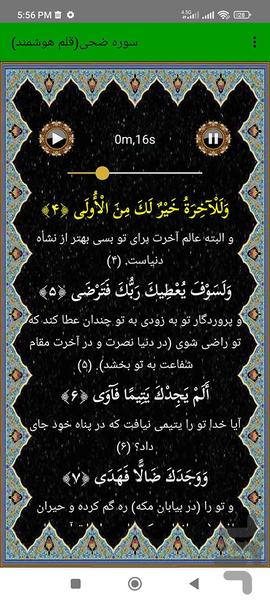 5:56 PM
سوره ضحی(قلم هوشمند)
0m,16s
وَلَلْآخِرَةُ خَيْرٌ لَكَ مِنَ الْأُولَى ﴿۴﴾
و البته عالم آخرت برای تو بسی بهتر از نشأه
دنیاست. (۴)
وَلَسَوْفَ يُعْطِيكَ رَبُّكَ فَتَرْضَى ﴿۵﴾
و پروردگار تو به زودی به تو چندان عطا کند که
تو راضی شوی (در دنیا نصرت و در آخرت مقام
شفاعت به تو بخشد). (۵)
أَلَمْ يَجِدْكَ يَتِيمًا فَآوَى ﴿۶﴾
آیا خدا تو را یتیمی نیافت که در پناه خود جای
داد؟ (۶)
وَوَجَدَكَ ضَالًّا فَهَدَى ﴿۷﴾
و تو را (در بیابان مکه) ره گم کرده و حیران